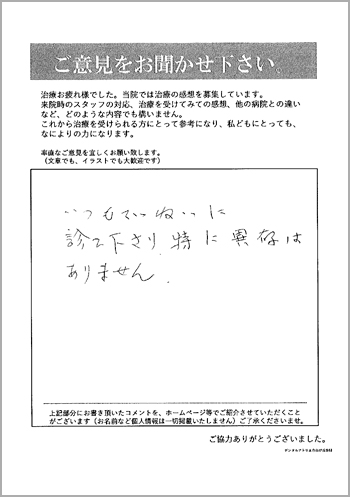 ご意見をお聞かせ下さい。
治療お疲れ様でした。当院では治療の感想を募集しています。
来院時のスタッフの対応、治療を受けてみての感想、他の病院との違い
など、どのような内容でも構いません。
これから治療を受けられる方にとって参考になり、私どもにとっても、
なによりの力になります。
率直なご意見を宜しくお願い致します。
（文章でも、イラストでも大歓迎です）
いつもていねいに
診て下さり、特に異存は
ありません。
上記部分にお書き頂いたコメントを、ホームページ等でご紹介させていただくこと
がございます（お名前など個人情報は一切掲載いたしません）ご了承くださいませ。
ご協力ありがとうございました。